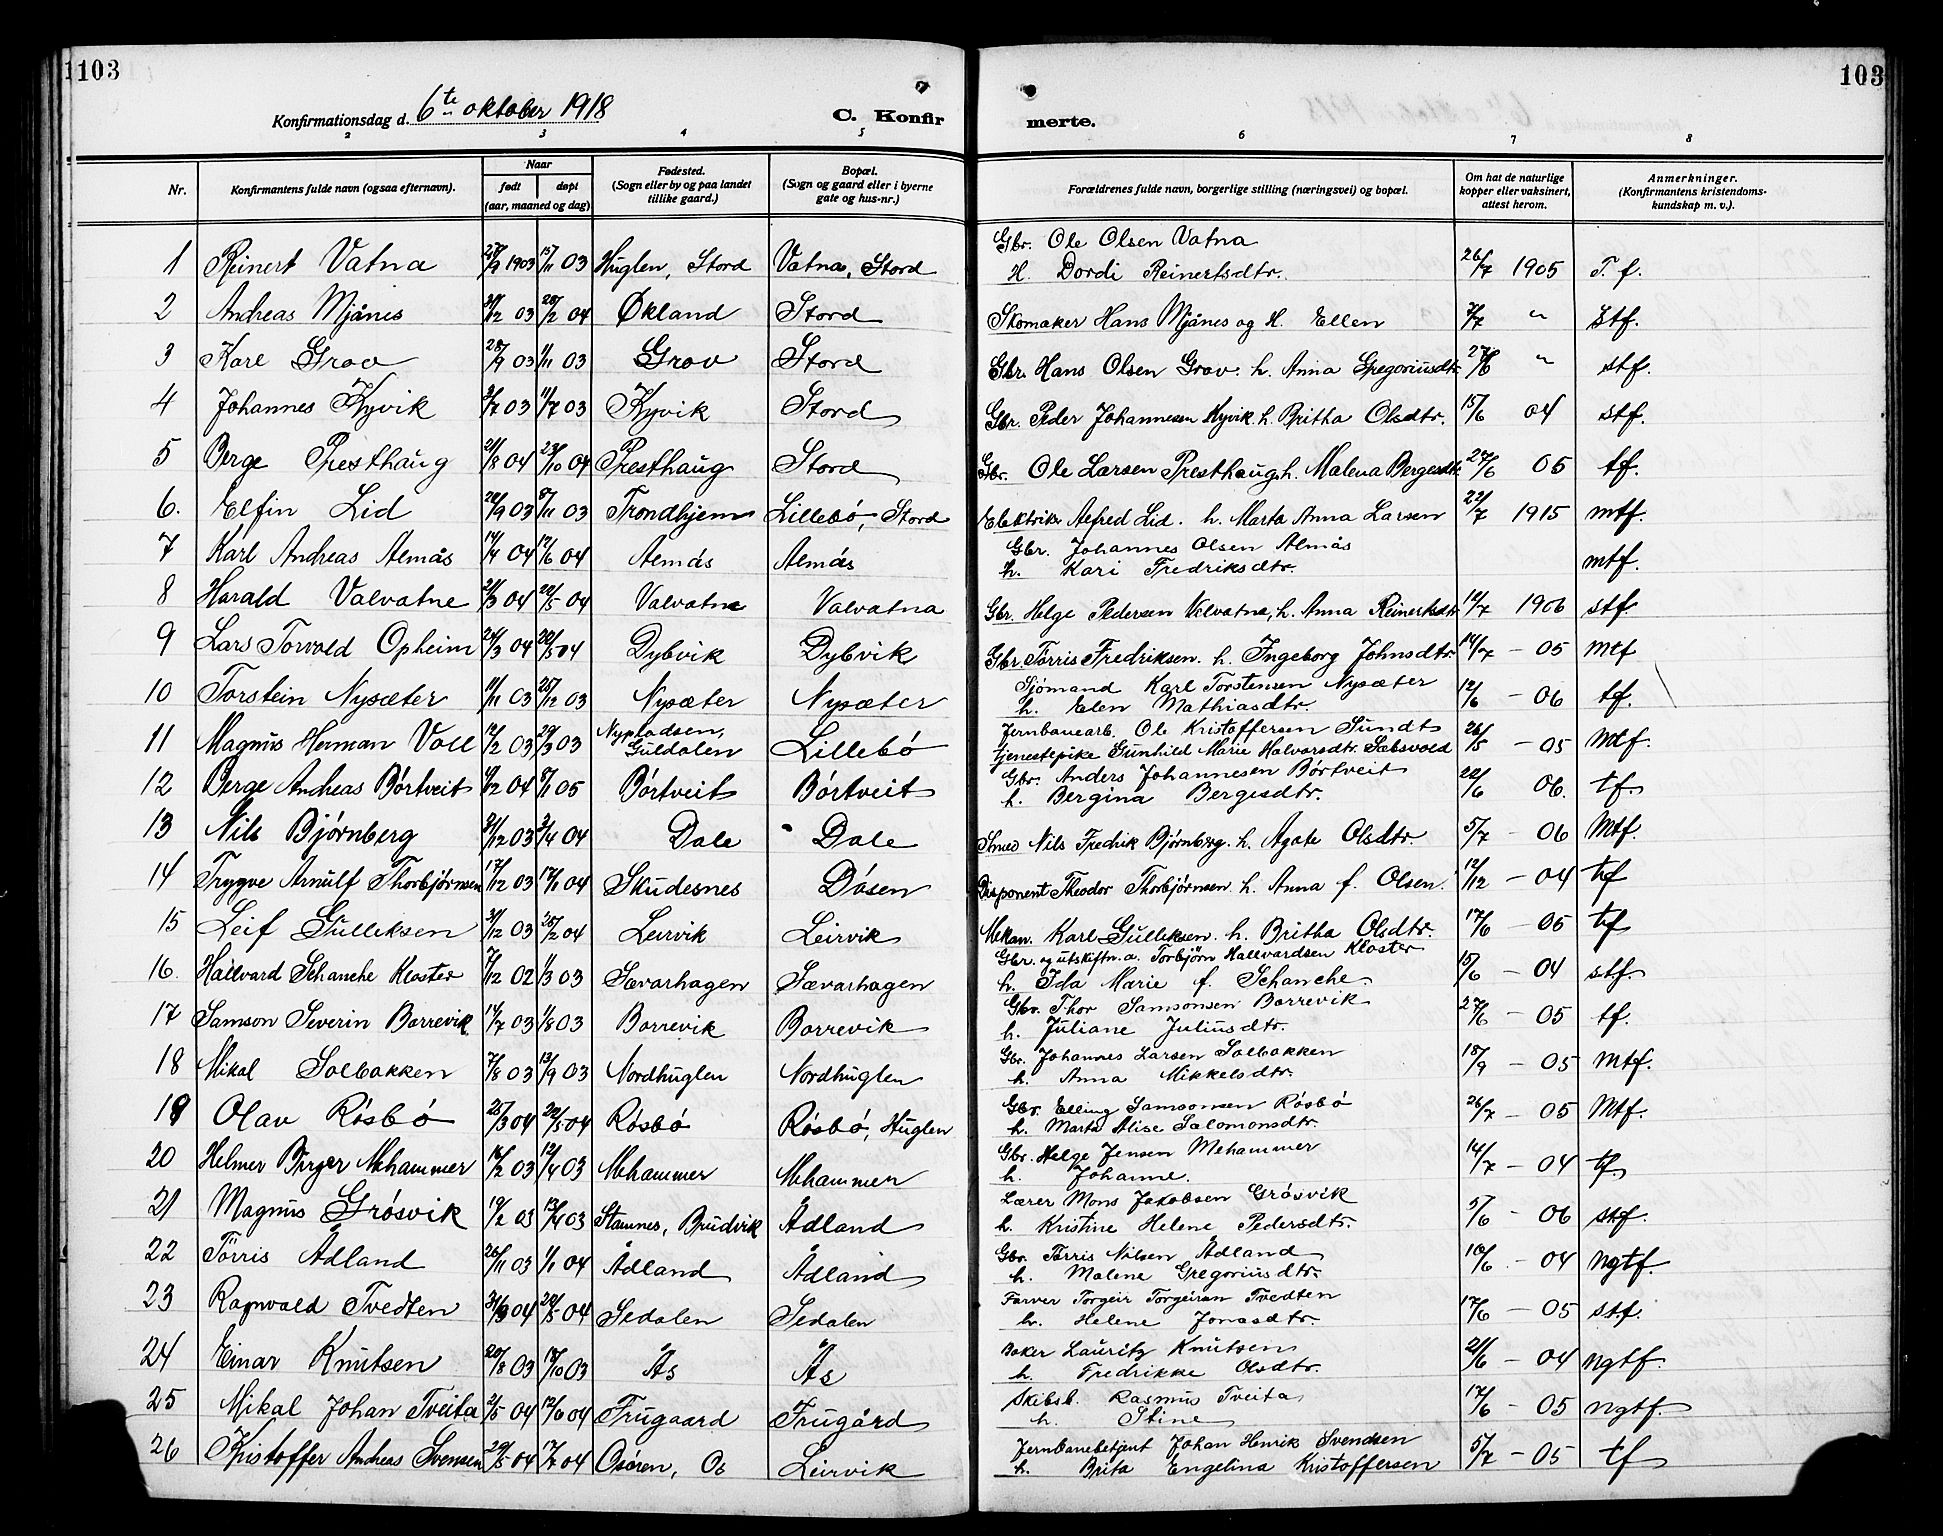 103
103
Konfirmationsdag d. 6te oktober 1918
C. Konfir
merte.
2 3 4 5 6 7 8
Nr. Konfirmantens fulde navn (ogsaa efternavn). Naar født døpt (aar, maaned og dag) Fødested. (Sogn eller by og paa landet tillike gaard.) Bopæl. (Sogn og gaard eller i byerne gate og hus-nr.) Forældrenes fulde navn, borgerlige stilling (næringsvei) og bopæl. Om hat de naturlige kopper eller vaksinert, attest herom. Anmerkninger. (Konfirmantens kristendoms-kundskap m. v.).
1 Reinert Vatna 27/9 1903 15/11 03 Huglen, Stord Vatna, Stord Gbr. Ole Olsen Vatna
H. Dordi Reinertsdtr. 26/7 1905 T. f.
2 Andreas Mjånes 31/12 03 28/2 04 Økland Stord Skomaker Hans Mjånes og H. Ellen 3/7 " Stf.
3 Karl Grov 28/9 03 1/11 03 Grov Stord Gbr. Hans Olsen Grov. h. Anna Gregoriusdtr. 27/6 " stf.
4 Johannes Kyvik 3/7 03 11/7 03 Kyvik Stord Gbr. Peder Johannesen Kyvik. h. Britha Olsdtr. 15/6 04 stf.
5 Berge Presthaug 21/8 04 23/10 04 Presthaug Stord Gbr. Ole Larsen Presthaug h. Malena Bergesdtr. 27/6 05 tf.
6. Elfin Lid 20/9 03 8/11 03 Trondhjem Lillebö, Stord Elektrik. Alfred Lid. h. Marta Anna Larsen 22/7 1915 mtf.
7 Karl Andreas Almås 14/4 04 12/6 04 Almås Almås Gbr. Johannes Olsen Almås
h. Kari Fredriksdtr. mtf.
8 Harald Valvatne 21/3 04 22/5 04 Valvatne Valvatna Gbr. Helge Pedersen Valvatne, h. Anna Reinertsdtr. 12/7 1906 stf.
9 Lars Torvald Opheim 24/3 04 22/5 04 Dybvik Dybvik Gbr. Torris Fredriksen. h. Ingeborg Johnsdtr. 14/7 - 05 Mtf
10 Torstein Nysæter 11/11 03 25/12 03 Nysæter Nysæter Sjómand Karl Torstensen Nysæter
h. Elen Mathiasdtr. 12/6 - 06 tf.
11 Magnus Herman Voll 12/2 03 29/3 03 Nypladsen, Guldalen Lillebó Jernbanearb. Ole Kristoffersen Sundt
tjenestepike Gunhild Marie Halvorsdtr. 26/5 - 05 Mtf.
12 Berge Andreas Börtveit 4/12 04 8/1 05 Börtveit Börtveit Gbr. Anders Johannesen Börtveit
h. Bergina Bergesdtr. 22/6 06. tf.
13 Nils Bjørnberg 31/12 03 3/4 04 Dale Dale Smed Nils Fredrik Bjørnberg. h. Agate Olsdtr. 5/7 - 06 Mtf.
14 Trygve Arnulf Thorbjørnsen 17/12 03 17/1 04 Skudesnes Dösen Disponent Theodor Thorbjørnsen. h. Anna f. Olsen. 12/12 - 04 tf
15 Leif Gulliksen 31/12 03 28/2 04 Leirvik Leirvik Mekan. Karl Gulliksen. h. Britha Olsdtr. 17/6 - 05 tf
16. Hallvard Schanche Kloster 7/12 02 1/3 03 Sævarhagen Sævarhagen Gbr. og utskiftn.a. Torbjörn Hallvardsen Kloster
h. Ida Marie f. Schanche. 15/6 - 04 stf.
17 Samson Severin Borrevik 14/7 03 1/8 03 Borrevik Borrevik Gbr. Thor Samsonsen Borrevik
h. Juliane Juliusdtr. 27/6 - 05 tf.
18 Mikal Solbakken 7/8 03 13/9 03 Nordhuglen Nordhuglen Gbr. Johannes Larsen Solbakken
h. Anna Mikkelsdtr. 18/9 - 05 Mtf.
19 Olav Rösbö 25/3 04 22/5 04 Rösbö Rösbö, Huglen Gbr. Elling Samsonsen Rösbö
h. Marta Alise Salomonsdtr. 26/7 - 05 Mtf.
20 Helmer Birger Mehammer 16/2 03 12/4 03 Mehammer Mehammer Gbr. Helge Jensen Mehammer
h. Johanne. 14/7 - 04 tf
21 Magnus Grösvik 19/2 03 13/4 03 Stamnes, Brudvik Ådland Lærer Mons Jakobsen Grösvik
h. Kristine Helene Pedersdtr. 5/6 - 06 stf.
22 Törris Ådland 26/11 03 1/1 04 Ådland Ådland Gbr. Törris Nilsen Ådland
h. Malene Gregoriusdtr. 10/6 - 04 ngtf.
23 Ragnvald Tvedten 31/3 04 22/5 04 Sedalen Sedalen Farver Torgeir Torgeirsen Tvedten
h. Helene Jonasdtr. 17/6 - 05 stf.
24 Einar Knutsen 20/8 03 18/10 03 Ås Ås Baker Lauritz Knutsen
h. Fredrikke Olsdtr. 21/6 - 04 ngtf.
25 Mikal Johan Tveita 2/5 04 12/6 04 Frugaard Frugård Skibsb. Rasmus Tveita
h. Stine 17/6 - 05 ngtf.
26 Kristoffer Andreas Svensen 29/5 04 17/7 04 Osóren, Os Leirvik Jernbanebetjent Johan Henrik Svendsen
h. Brita Engelina Kristoffersen 5/7 - 05 tf